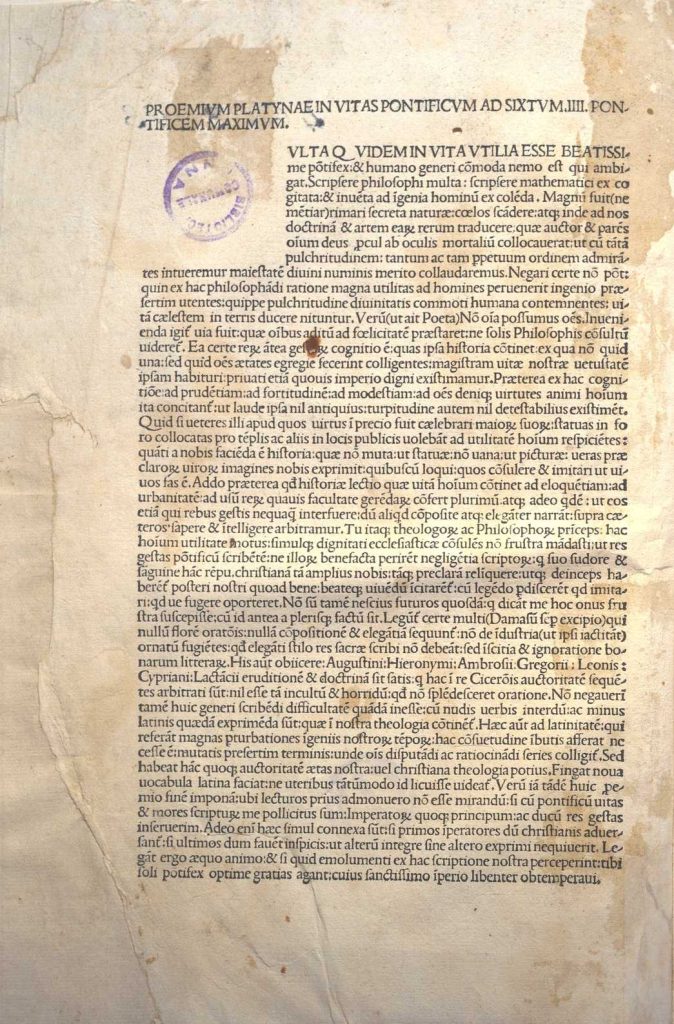 PROEMIVM PLATYNAE IN VITAS PONTIFICVM AD SIXTVM .IIII. PON-
TIFICEM MAXIMVM.
VLTA QVIDEM IN VITA VTILIA ESSE BEATISSI-
me põtifex: & humano generi cõmoda nemo est qui ambi-
gat. Scripsere philosophi multa: scripsere mathematici ex co
gitata: & inuẽta ad ĩgenia hominũ ex colẽda. Magnũ fuit (ne
mẽtiar) rimari secreta naturæ: cœlos scãdere: atq; inde ad nos
doctrinã & artem eaꝝ rerum traducere: quæ auctor & parẽs
oĩum deus ꝓcul ab oculis mortaliũ collocauerat: ut cũ tãtã
pulchritudinem: tantum ac tam ppetuum ordinem admirã-
tes intueremur maiestatẽ diuini numinis merito collaudaremus. Negari certe nõ põt:
quin ex hac philosophãdi ratione magna utilitas ad homines peruenerit ingenio præ-
sertim utentes: quippe pulchritudine diuinitatis commoti humana contemnentes: ui-
tã cælestem in terris ducere nituntur. Verũ (ut ait Poeta) Nõ oĩa possumus oẽs. Inueni-
enda igit̃ uia fuit: quæ oĩbus aditũ ad fœlicitatẽ præstaret: ne solis Philosophis cõsultũ
uideret̃. Ea certe reꝝ ãtea gestaꝝ cognitio ẽ: quas ipsa historia cõtinet: ex qua nõ quid
una: sed quid oẽs ætates egregie fecerint colligentes: magistram uitæ nostræ uetustatẽ
ipsam habituri: priuati etiã quouis imperio digni existimamur. Præterea ex hac cogni-
tiõe: ad prudẽtiam: ad fortitudinẽ: ad modestiam: ad oẽs deniq; uirtutes animi hoĩum
ita concitant̃: ut laude ipsa nil antiquius: turpitudine autem nil detestabilius existimẽt.
Quid si ueteres illi apud quos uirtus ĩ precio fuit cælebrari maioꝝ suoꝝ: statuas in fo
ro collocatas pro tẽplis ac aliis in locis publicis uolebãt ad utilitatẽ hoĩum respiciẽtes:
quãti a nobis faciẽda ẽ historia: quæ nõ muta: ut statuæ: nõ uana: ut picturæ: ueras præ
claroꝝ uiroꝝ imagines nobis exprimit: quibuscũ loqui: quos cõsulere & imitari ut ui-
uos fas ẽ. Addo præterea qđ historiæ lectio quæ uitã hoĩum cõtinet ad eloquẽtiam: ad
urbanitatẽ: ad usũ reꝝ quauis facultate gerẽdaꝝ cõfert plurimũ. atq; adeo qđẽ: ut eos
etiã qui rebus gestis nequaq̃ interfuere: dũ aliqđ cõposite atq; eleganter narrãt: supra cæ-
teros sapere & ĩtelligere arbitramur. Tu itaq; theologoꝝ ac Philosophoꝝ prĩceps: hac
hoĩum utilitate motus: simulq; dignitati ecclesiasticæ cõsulẽs nõ frustra mãdasti: ut res
gestas põtificũ scribẽtẽ: ne illoꝝ benefacta perirẽt negligẽtia scriptoꝝ: q̃ suo sudore &
sãguine hãc rẽpu. christianã tã amplius nobis: tãq; preclarã relĩquere: utq; deinceps ha-
berẽt posteri nostri quo ad bene: beateq; uiuẽdũ ĩcitarẽt̃: cũ legẽdo pdiscerẽt qđ imita-
ri: qđ ue fugere oporteret. Nõ sũ tamẽ nescius futuros quosdã: q̃ dicãt me hoc onus fru
stra suscepisse: cũ id antea a plerisq; factũ sit. Legũt̃ certe multi (Damasũ sẽp excipio) qui
nullũ florẽ oratõis: nullã cõpositionẽ & elegãtiã sequunt̃: nõ de ĩdustria (ut ipsi iactitãt)
ornatũ fugiẽtes: qđ elegãti stilo res sacræ scribi nõ debeãt: sed ĩscitia & ignoratione bo-
narum litteraꝝ. His aũt obiicere: Augustini: Hieronymi: Ambrosii: Gregorii: Leonis:
Cypriani: Lactãcii eruditionẽ & doctrinã sit satis: q̃ hac ĩ re Cicerõis auctoritatẽ sequẽ-
tes arbitrati sũt: nil esse tã incultũ & horridũ: qđ nõ splẽdesceret oratione. Nõ negauerĩ
tamẽ huic generi scribẽdi difficultatẽ quãdã inesse: cũ nudis uerbis interdũ: ac minus
latinis quædã exprimẽda sũt: quæ ĩ nostra theologia cõtinẽt̃. Hæc aũt ad latinitatẽ: qui
referãt magnas pturbationes ĩgeniis nostroꝝ tẽpoꝝ: hac cõsuetudine ĩbutis afferat ne
cesse ẽ: mutatis presertim terminis: unde oĩs disputãdi ac ratiocinãdi series colligit̃. Sed
habeat hãc quoq; auctoritatẽ ætas nostra: uel christiana theologia potius, Fingat noua
uocabula latina faciat: ne ueteribus tãtũmodo id licuisse uideat̃. Verũ iã tãdẽ huic ꝓe-
mio finẽ imponã: ubi lecturos prius admonuero nõ esse mirandũ: si cũ pontificũ uitas
& mores scripturũ me pollicitus sum: Imperatoꝝ quoq; principum: ac ducũ res gestas
inseruerim. Adeo eñ hæc simul connexa sũt: si primos ĩperatores dũ christianis aduer-
sant̃: si ultimos dum fauẽt inspicis: ut alterũ integre sine altero exprimi nequiuerit. Le-
gãt ergo æquo animo: & si quid emolumenti ex hac scriptione nostra perceperint: tibi
soli põtifex optime gratias agant: cuius sanctissimo ĩperio libenter obtemperaui.